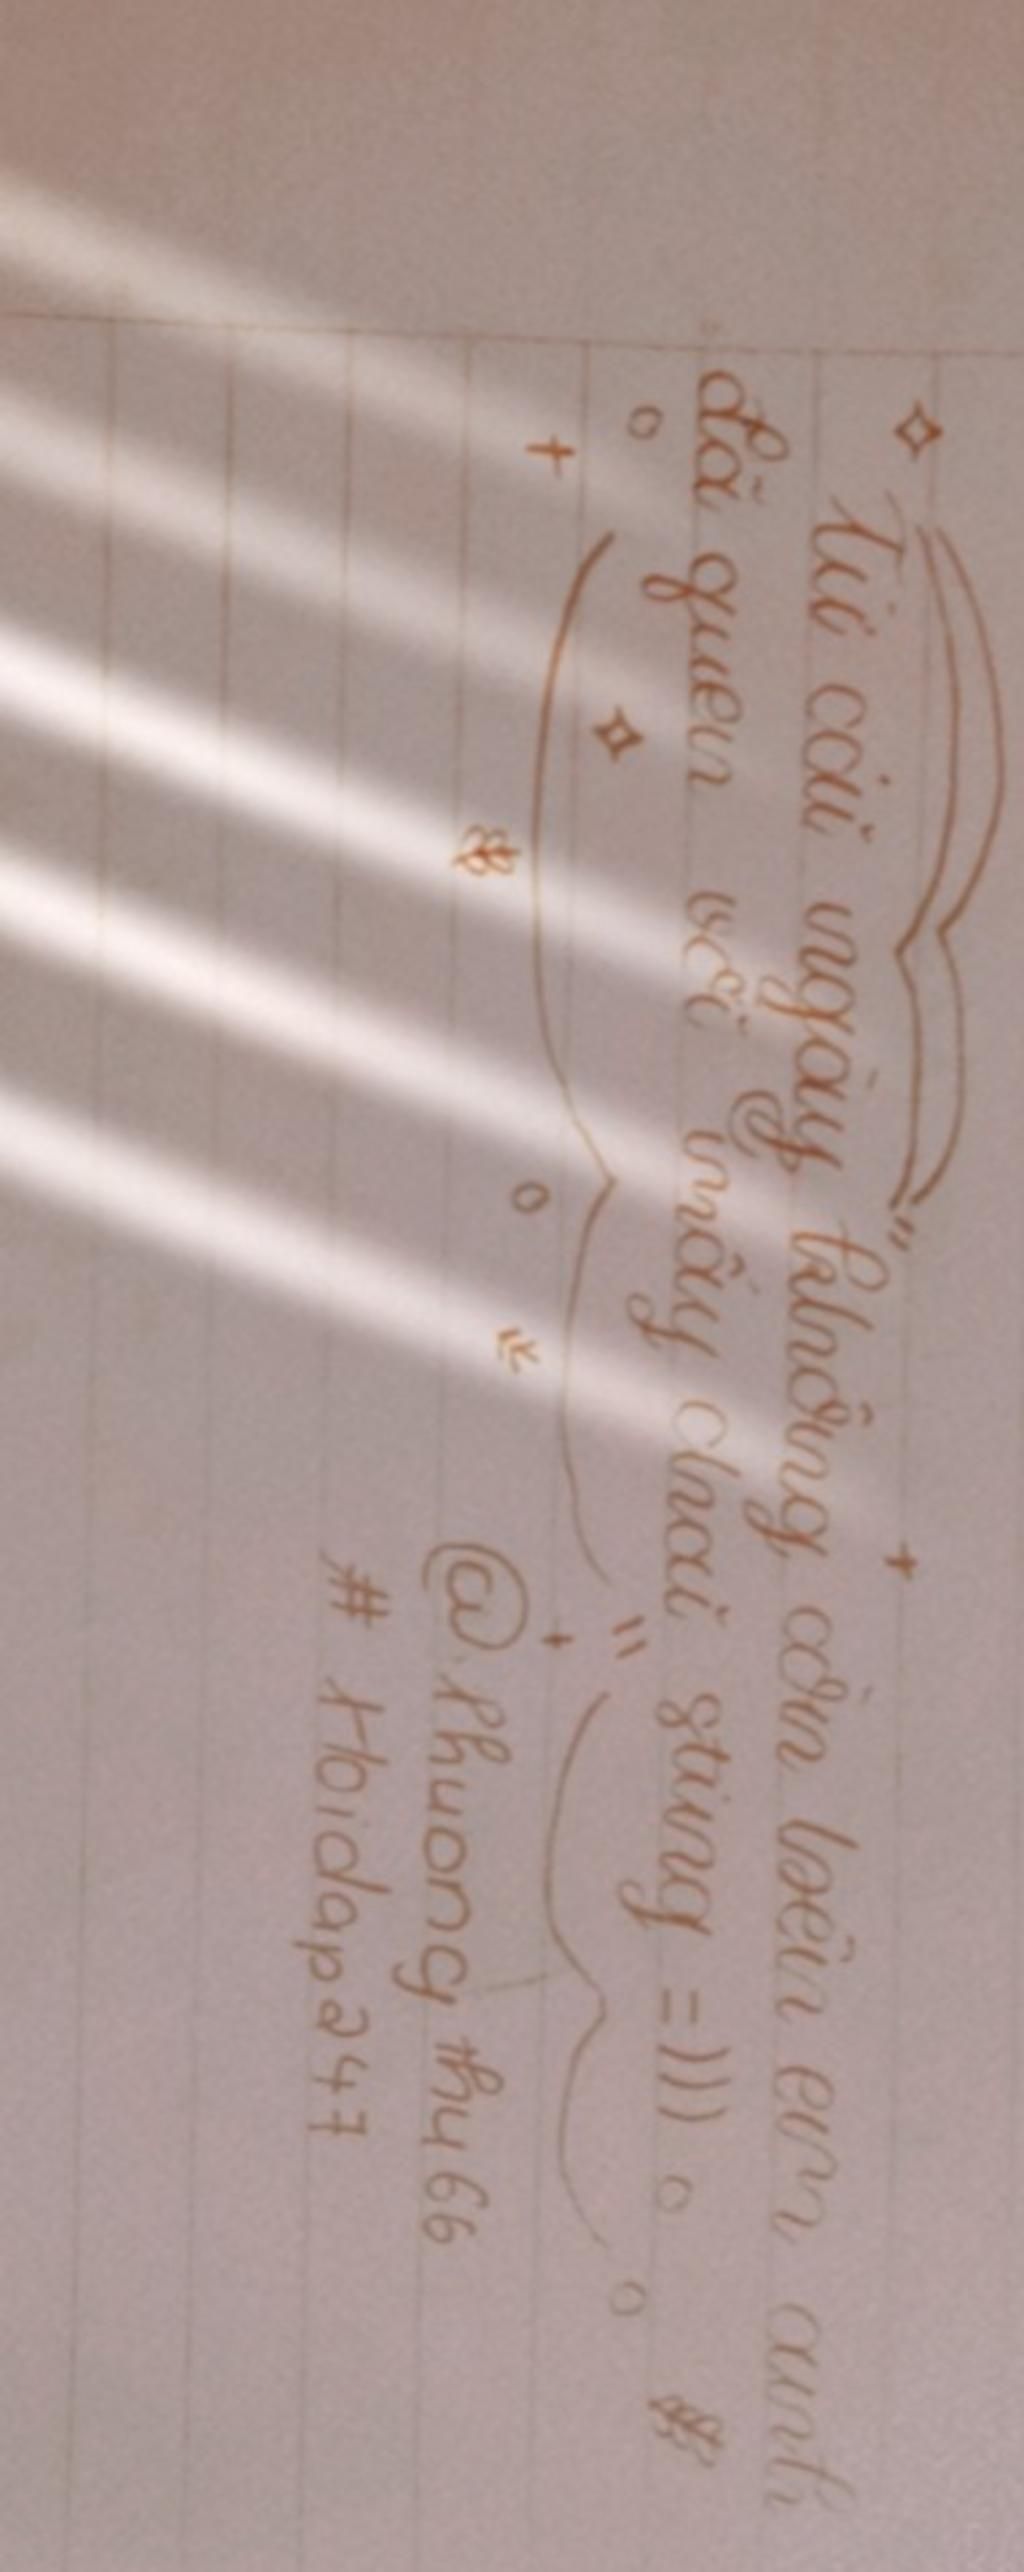 Từ cái ngày không còn bên em anh
đã quen với mấy chai string =)))
@Phuong thy66
# Hoidap247